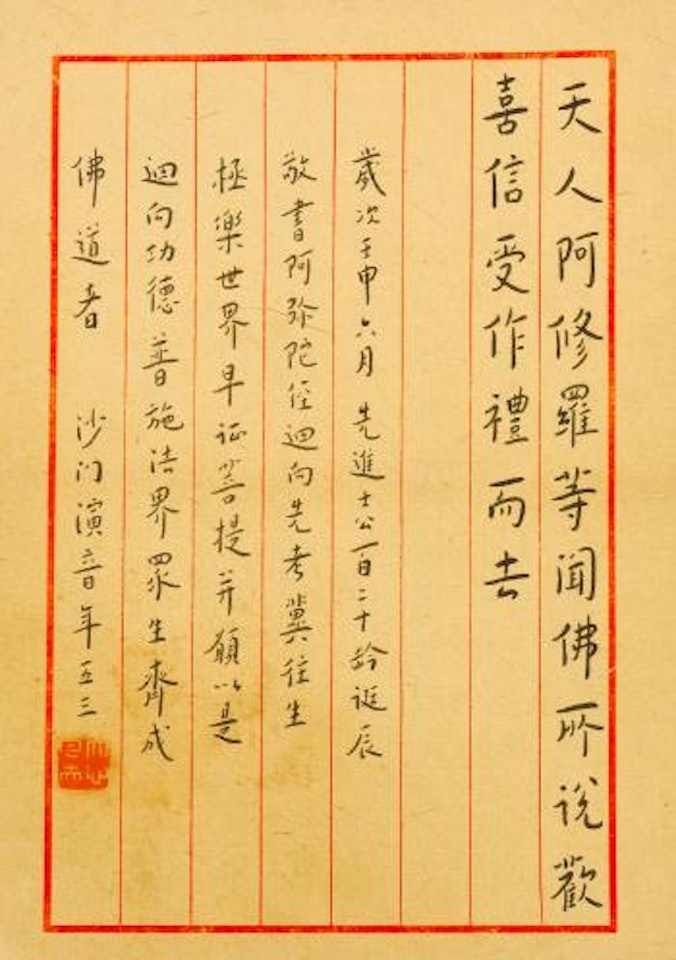 天人阿修羅等聞佛所說歡
喜信受作禮而去
歲次壬申六月先進士公一百二十齡誕辰
敬書阿弥陀經迴向先考冀往生
極樂世界早证菩提并願以是
迴向功德普施法界眾生齊成
佛道者 沙门演音年五三